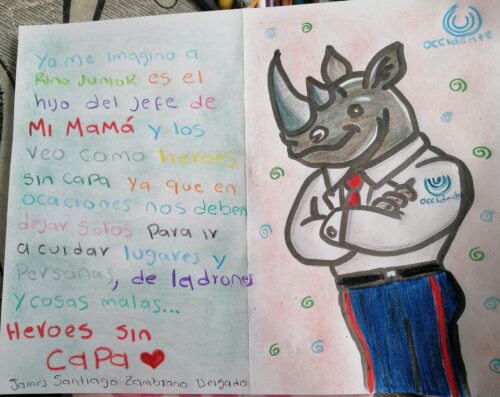 Yo me imagino a
Rino Junior es el
hijo del jefe de
Mi Mamá y los
veo como heroes
sin capa ya que en
ocaciones nos deben
dejar solos para ir
a cuidar lugares y
Personas, de ladrones
y cosas malas...
Heroes sin
capa
James Santiago Zambrano Delgado
occidente
occidente